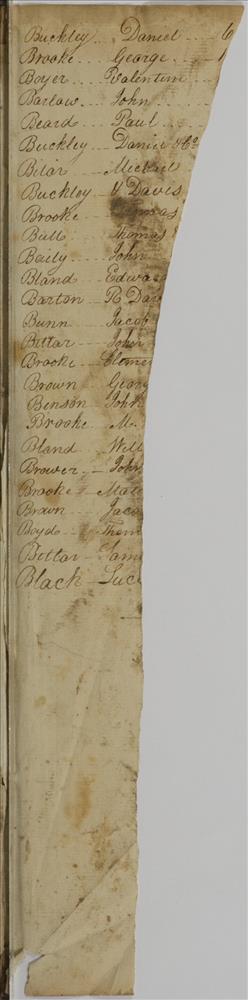 Buckley Daniel 6
Brooke George 1
Boyer Valentine
Barlow John
Beard Paul
Buckley Daniel & Co
Bitar Michael
Buckley & Davis
Brooke Thomas
Ball Thomas
Baily John
Bland Edwa
Barton & Dav
Bunn Jacob
Bittar John
Brooke Clemen
Brown Georg
Benson John
Brooke M
Bland Will
Brower John
Brooke Mat
Brown Jaco
Boyd Thom
Bittar Sam
Black Luc